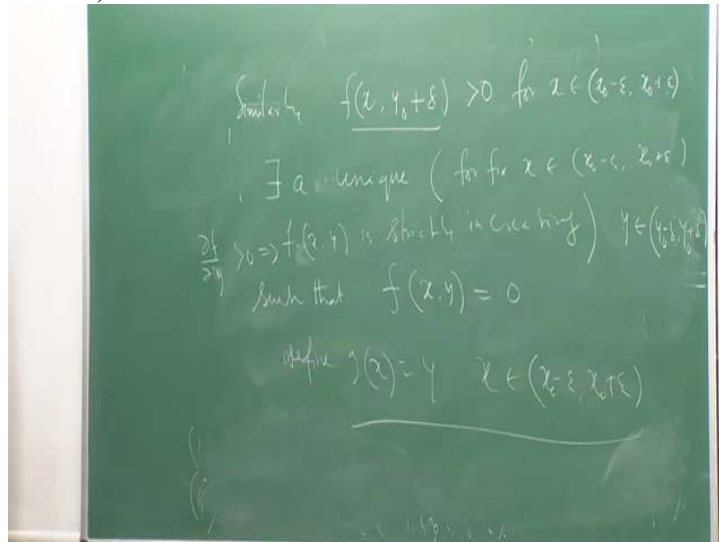 Similarly f(x, y₀+δ) >0 for x ∈ (x₀-ε, x₀+ε)
∃ a unique ( for fix x ∈ (x₀-ε, x₀+ε)
∂f/∂y >0 => f(x, y) is strictly increasing ) y ∈ (y₀-δ, y₀+δ)
Such that f(x,y) = 0
define g(x) = y x ∈ (x₀-ε, x₀+ε)